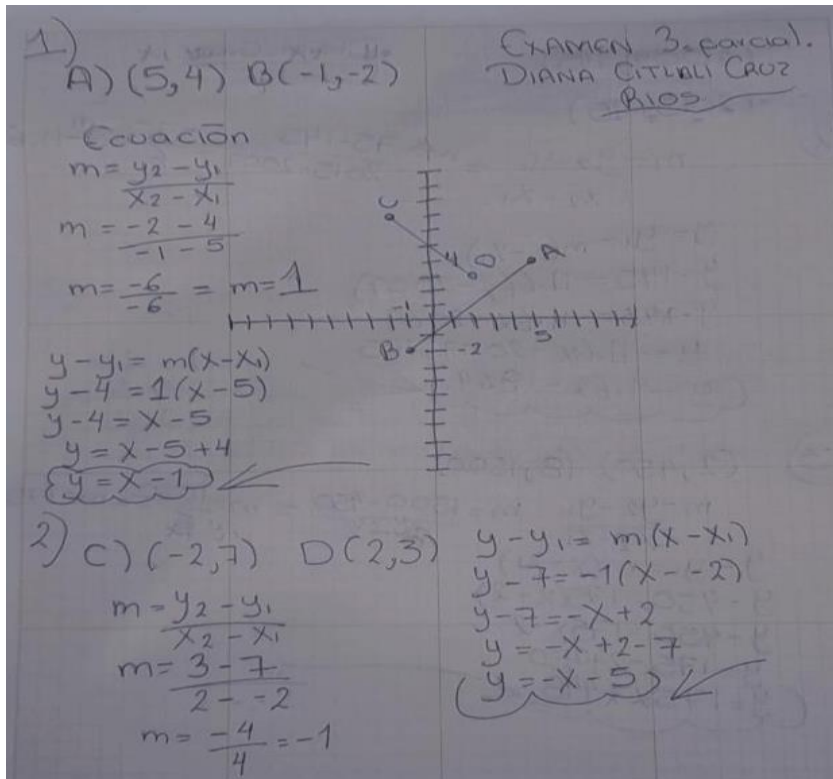 1)
EXAMEN 3.parcial.
DIANA CITLALI CRUZ
RIOS
A) (5,4) B(-1,-2)
Ecuación
m = y₂ - y₁ / x₂ - x₁
m = -2 - 4 / -1 - 5
m = -6 / -6 = m = 1
y - y₁ = m(x - x₁)
y - 4 = 1(x - 5)
y - 4 = x - 5
y = x - 5 + 4
y = x - 1
C
4
D
A
-1
5
B
-2
2) C) (-2,7) D(2,3)
m = y₂ - y₁ / x₂ - x₁
m = 3 - 7 / 2 - -2
m = -4 / 4 = -1
y - y₁ = m(x - x₁)
y - 7 = -1(x - -2)
y - 7 = -x + 2
y = -x + 2 - 7
y = -x - 5